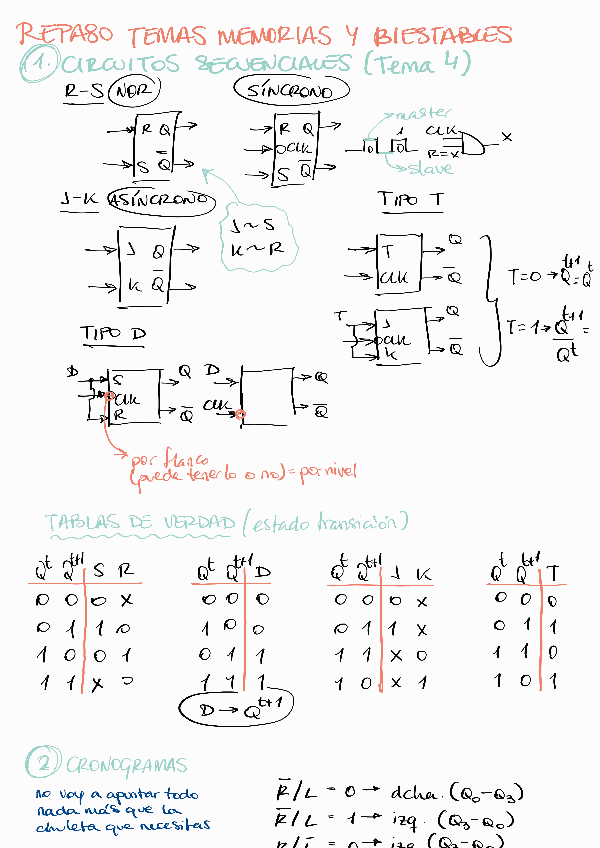 REPASO TEMAS MEMORIAS Y BIESTABLES
1. CIRCUITOS SECUENCIALES (Tema 4)
R-S NOR
SÍNCRONO
R Q
S Q̅
R Q
CLK
S Q̅
master
slave
1 0 1 0
CLK
R=X
X
J-K ASÍNCRONO
J Q
K Q̅
J~S
K~R
TIPO T
T
CLK
Q
Q̅
T
J
CLK
K
Q
Q̅
T=0→Q^t+1=Q^t
T=1→Q^t+1=
Q̅^t
TIPO D
D
S
CLK
R
Q
Q̅
D
CLK
Q
Q̅
por flanco
(puede tenerlo o no)=por nivel
TABLAS DE VERDAD (estado transición)
Q^t Q^t+1 S R
0 0 0 X
0 1 1 0
1 0 0 1
1 1 X 0
Q^t Q^t+1 D
0 0 0
1 0 0
0 1 1
1 1 1
D → Q^t+1
Q^t Q^t+1 J K
0 0 0 X
0 1 1 X
1 1 X 0
1 0 X 1
Q^t Q^t+1 T
0 0 0
0 1 1
1 1 0
1 0 1
2 CRONOGRAMAS
no voy a apuntar todo
nada más que la
chuleta que necesitas
R̅/L = 0 → dcha. (Q₀-Q₃)
R̅/L = 1 → izq. (Q₃-Q₀)
R/L̅ = 0 → izq (Q₃-Q₀)